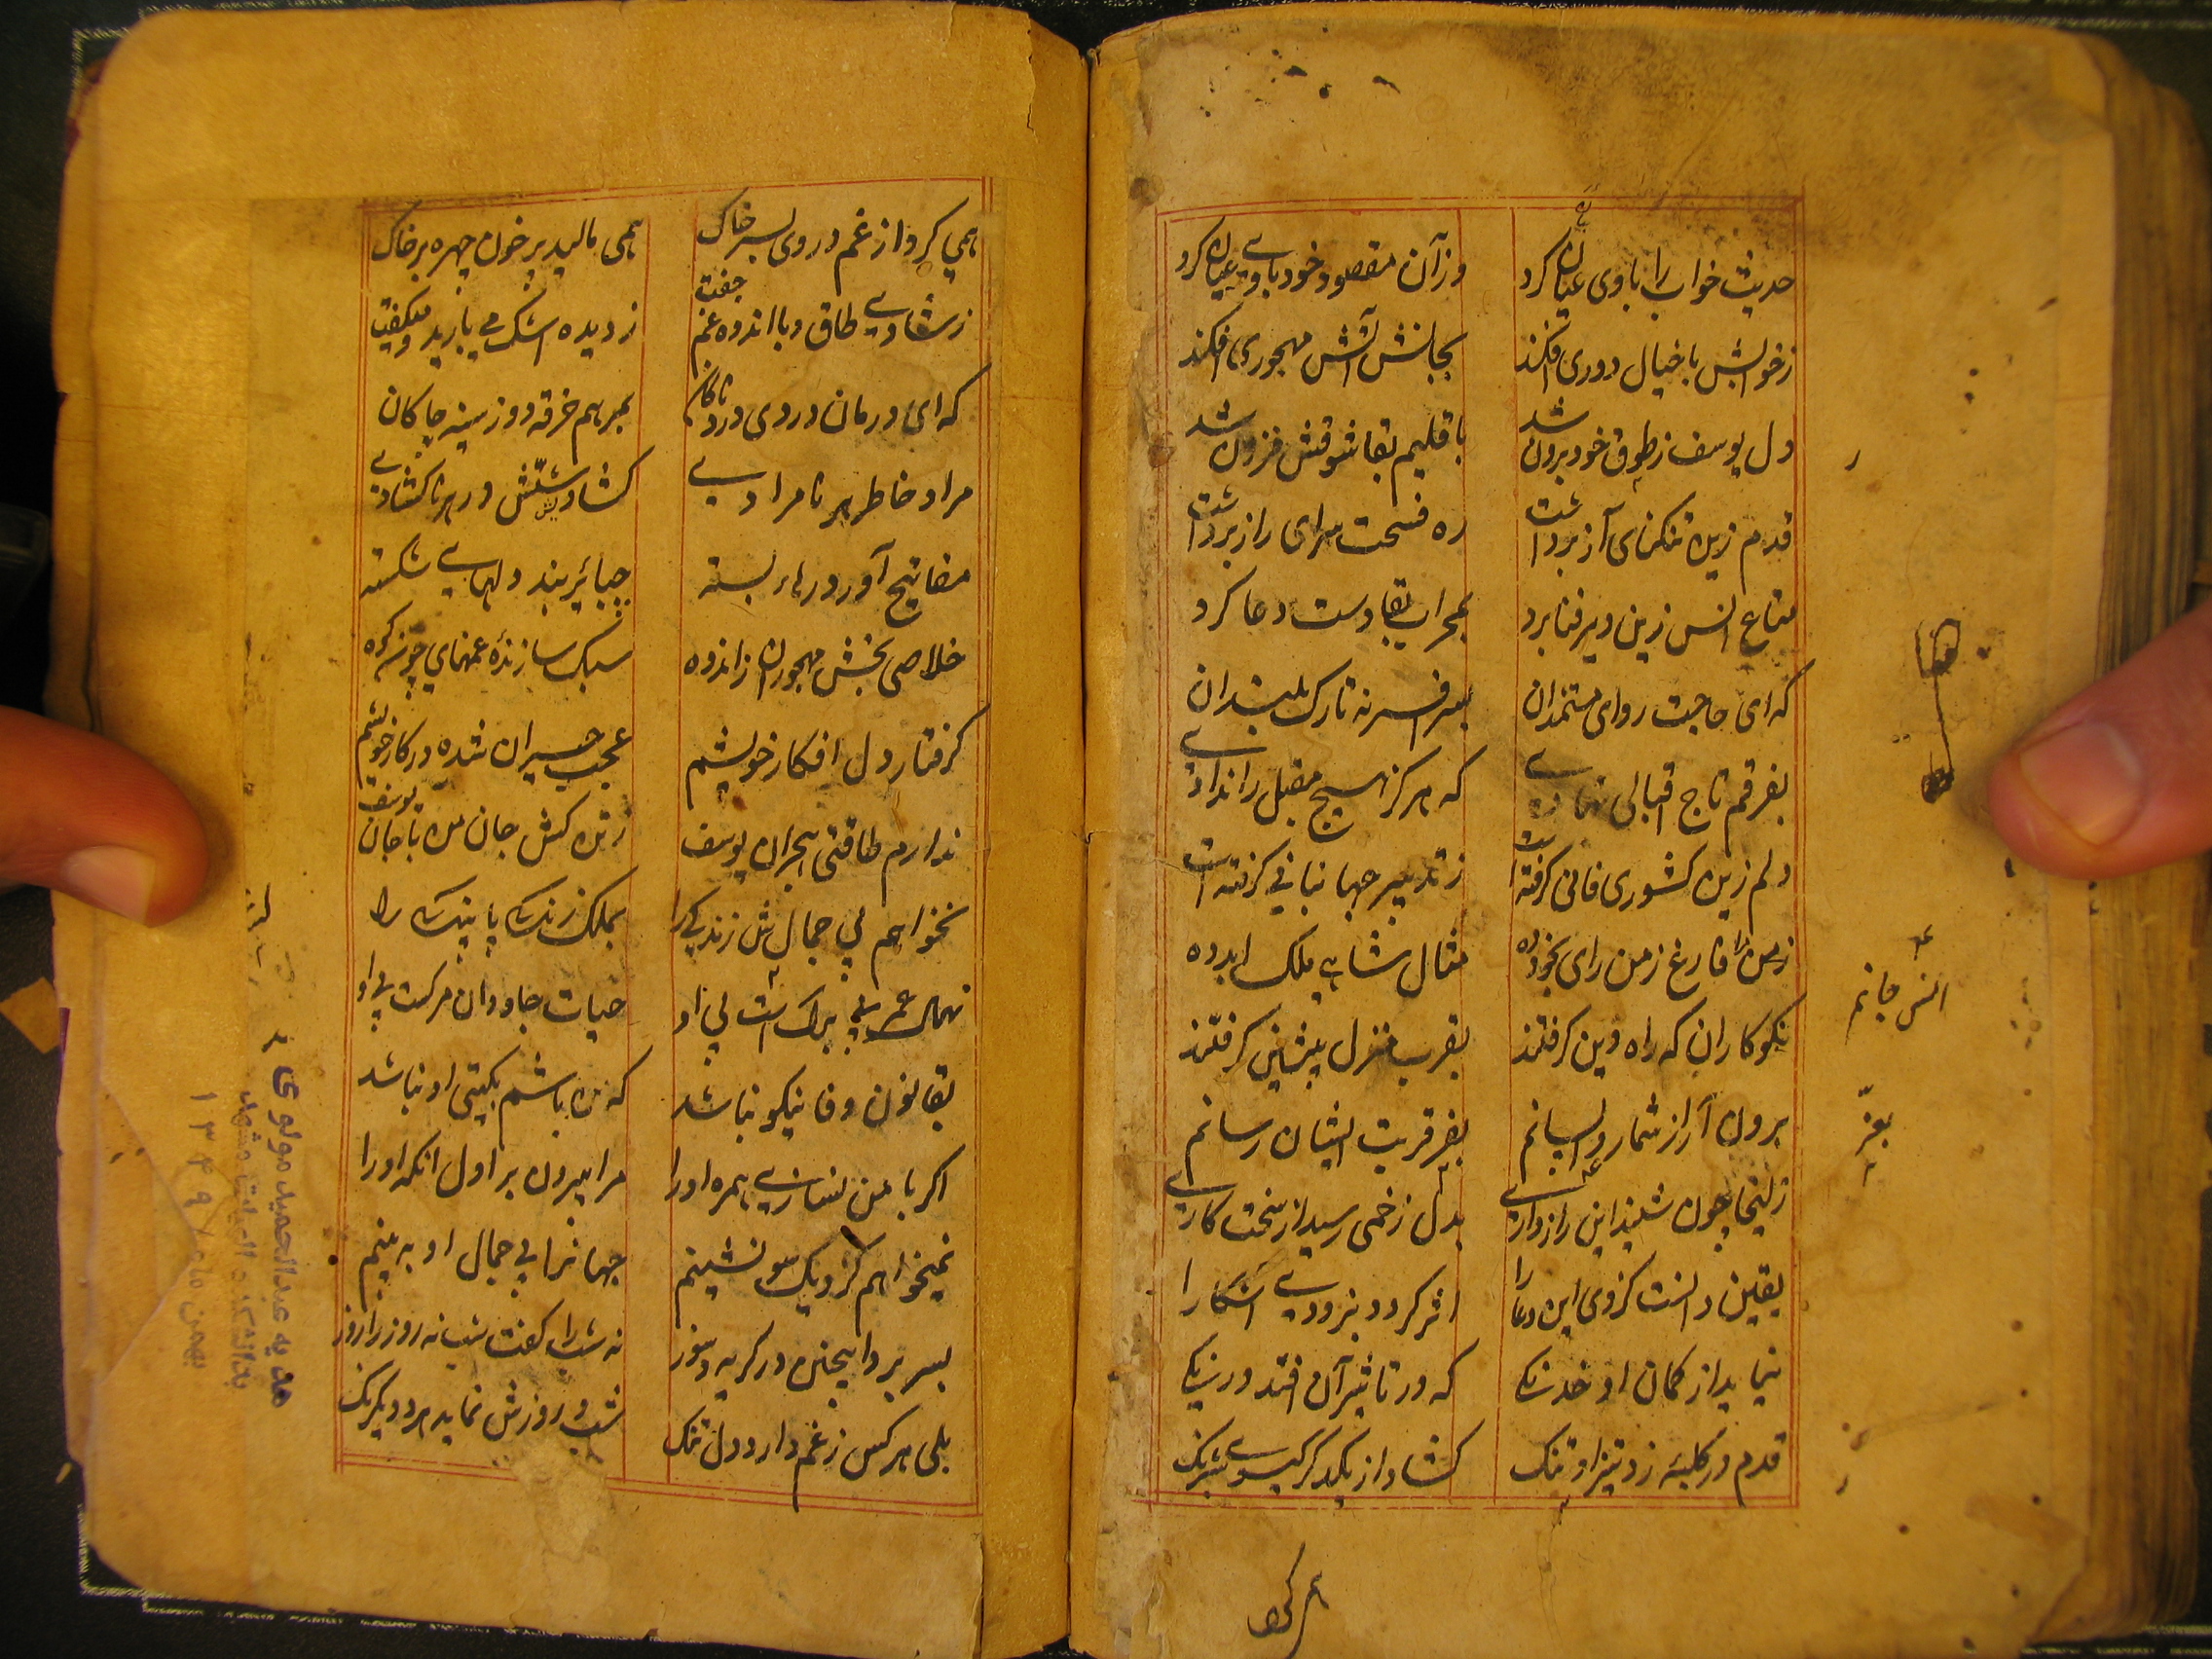 حدیث خواب را باوی عیان کرد وزآن مقصود خود باوی بیان کرد
زخوابش با خیال دوری افکند بجانش آتش مهجوری افکند
دل یوسف زطوق خود برون شد باقلیم بقا شوقش فزون شد
قدم زین تنکنای آز برداشت ره فسحت سرای راز برداشت
متاع انس زین دیر فنا برد بمحراب بقا دست دعا کرد
که ای حاجت روای مستمندان بسر افسر نه تارک بلندان
بفرقم تاج اقبالی نهادی که هرکز هیچ مقبل را ندادی
دلم زین کشوری فانی کرفته است زتدبیر جهانبانی کرفته است
زمن فارغ زمن رای بخود ده مثال شاهی ملک ابد ده
نکوکاران که راه دین کرفتند بقرب منزل پیشین کرفتند
برون آر از شمار واپسانم بفر قربت ایشان رسانم
انس جانم
بعز
زلیخا چون شنید این رازداری بدل زخمی رسید از سخت کاری
یقین دانست کز وی این دعا را اثر کردد بزودی آشکارا
نیاید از کمان او خدنکی که در تاثیر آن افتد درنکی
قدم در کلبئه زد تیز او تنک کشاد از یکدکر کیسوی شبرنک
همی کرد از غم دروی بسر خاک همی مالید پر خون چهره بر خاک
زشادی طاق وبا اندوه غم جفت زدیده اشک می بارید ومیکفت
که ای درمان دروی درد ناکان بمرهم خرقه دوز سینه چاکان
مراد خاطر هر نامرادی کشادش در هر ناکشادی
مفاتیح آور درهاء بسته جبائر بند دلهای شکسته
خلاصی بخش مهجوران زاندوه سبک سازندهٔ غمهای چون کوه
کرفتار دل افکار خویشم عجب حیران شده در کار خویشم
ندارم طاقتی هجران یوسف زتن کش جان من با جان یوسف
نخواهم بی جمالش زندکی را بملک زندکی پایندکی را
نهال عمر بی برک است بی او حیات جاودان مرکست بی او
بقانون وفا نیکو نباشد که من باشم بکیتی او نباشد
اکر با من نسازی همره اورا مرا بیرون بر اول انکه اورا
نمیخواهم کزو یک سو نشینم جهانرا بی جمال او به بینم
بسر بردا همچنین در کریه وسوز نه شب را کفت شب نه روز را روز
بلی هرکس زغم دارد دل تنک شب و روزش نماید هردو یکرنک
هدیه عبدالحمید مولوی
بدانشکده الهیات مشهد
بهمن ماه ۱۳۴۹